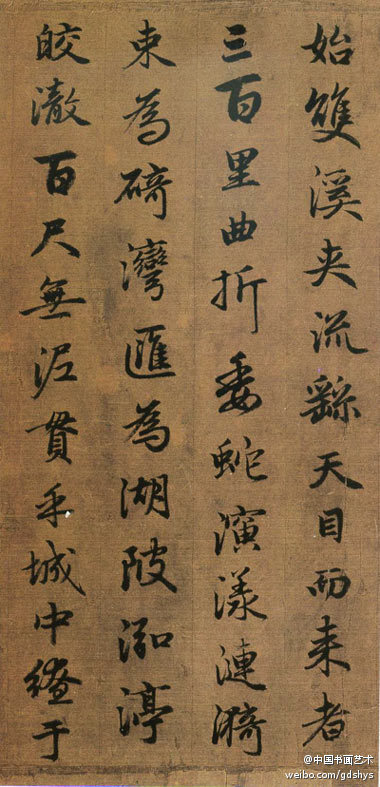 始雙溪夾流繇天目而来者
三百里曲折委蛇演漾漣漪
束為碕灣匯為湖陂泓渟
皎澈百尺無泥貫乎城中繚于
@中国书画艺术
weibo.com/gdshys